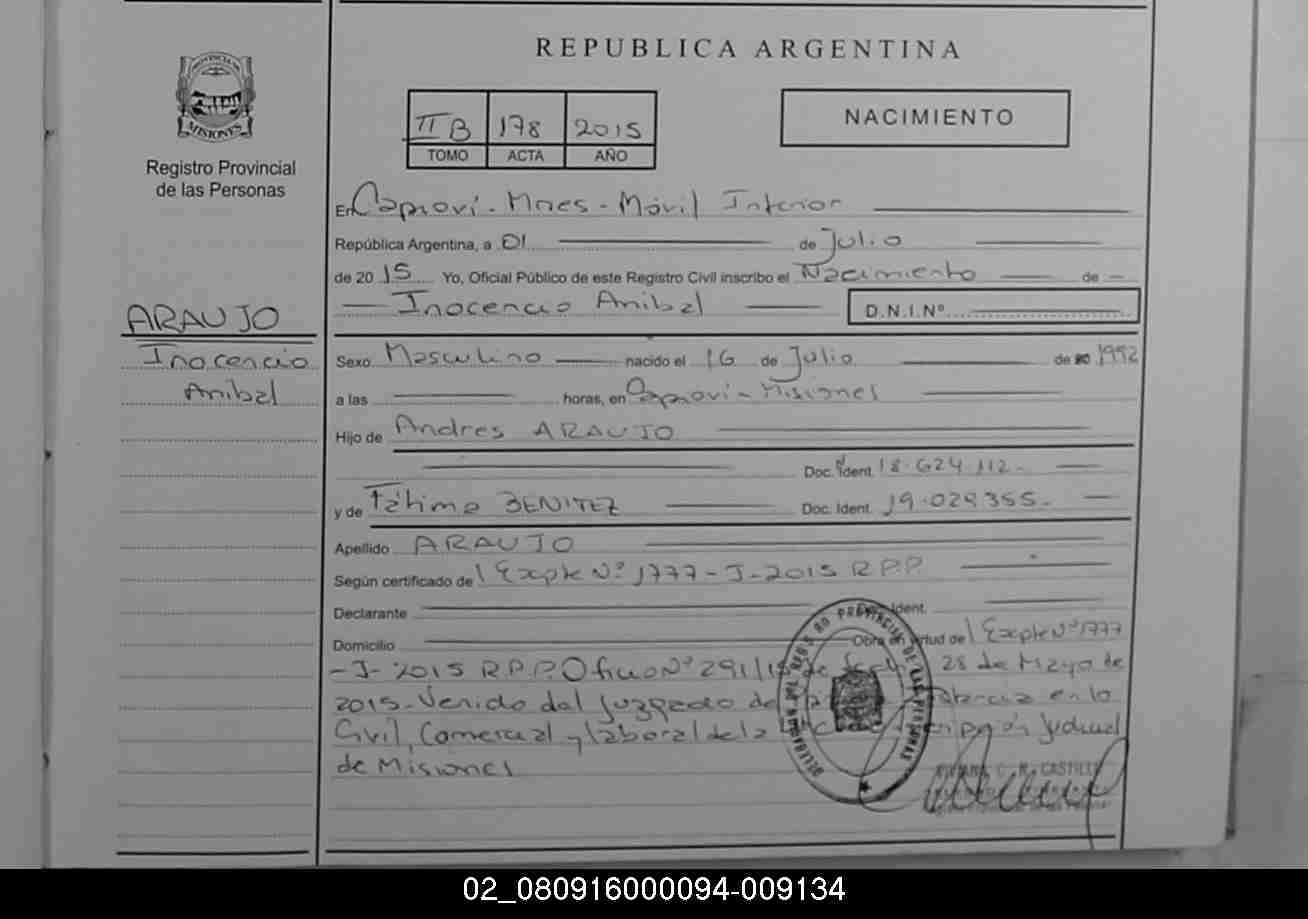 REPUBLICA ARGENTINA
PROVINCIA DE
MISIONES
Registro Provincial
de las Personas
II B 178 2015
TOMO ACTA AÑO
NACIMIENTO
En Capioví - Mnes - Móvil Interior
República Argentina, a 01 de Julio
de 2015 Yo, Oficial Público de este Registro Civil inscribo el Nacimiento de
Inocencio Anibal D.N.I.Nº
ARAUJO
Inocencio
Anibal
Sexo Masculino nacido el 16 de Julio de 1992
a las horas, en Capioví - Misiones
Hijo de Andres ARAUJO
Doc. Ident. 18.624.112
y de Fátima BENITEZ Doc. Ident. 19.029.355
Apellido ARAUJO
Según certificado de Expte Nº 1777-J-2015 R.P.P.
Declarante Doc. Ident.
Domicilio Obra en virtud de Expte Nº 1777
-J-2015 R.P.P. Oficio Nº 291/15 de fecha 28 de Mayo de
2015. Venido del Juzgado de en lo
Civil, Comercial y laboral de la Judicial
de Misiones
REGISTRO PROVINCIAL DE LAS PERSONAS
C. R. CASTILLO
02_080916000094-009134